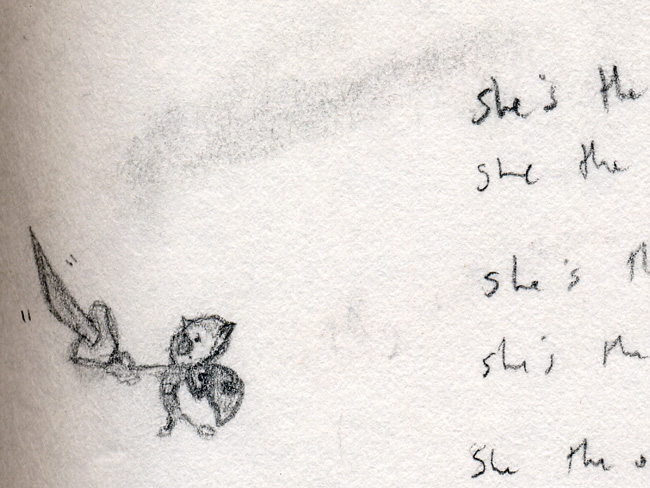 she's the
she the
she's th
she's the
She the o